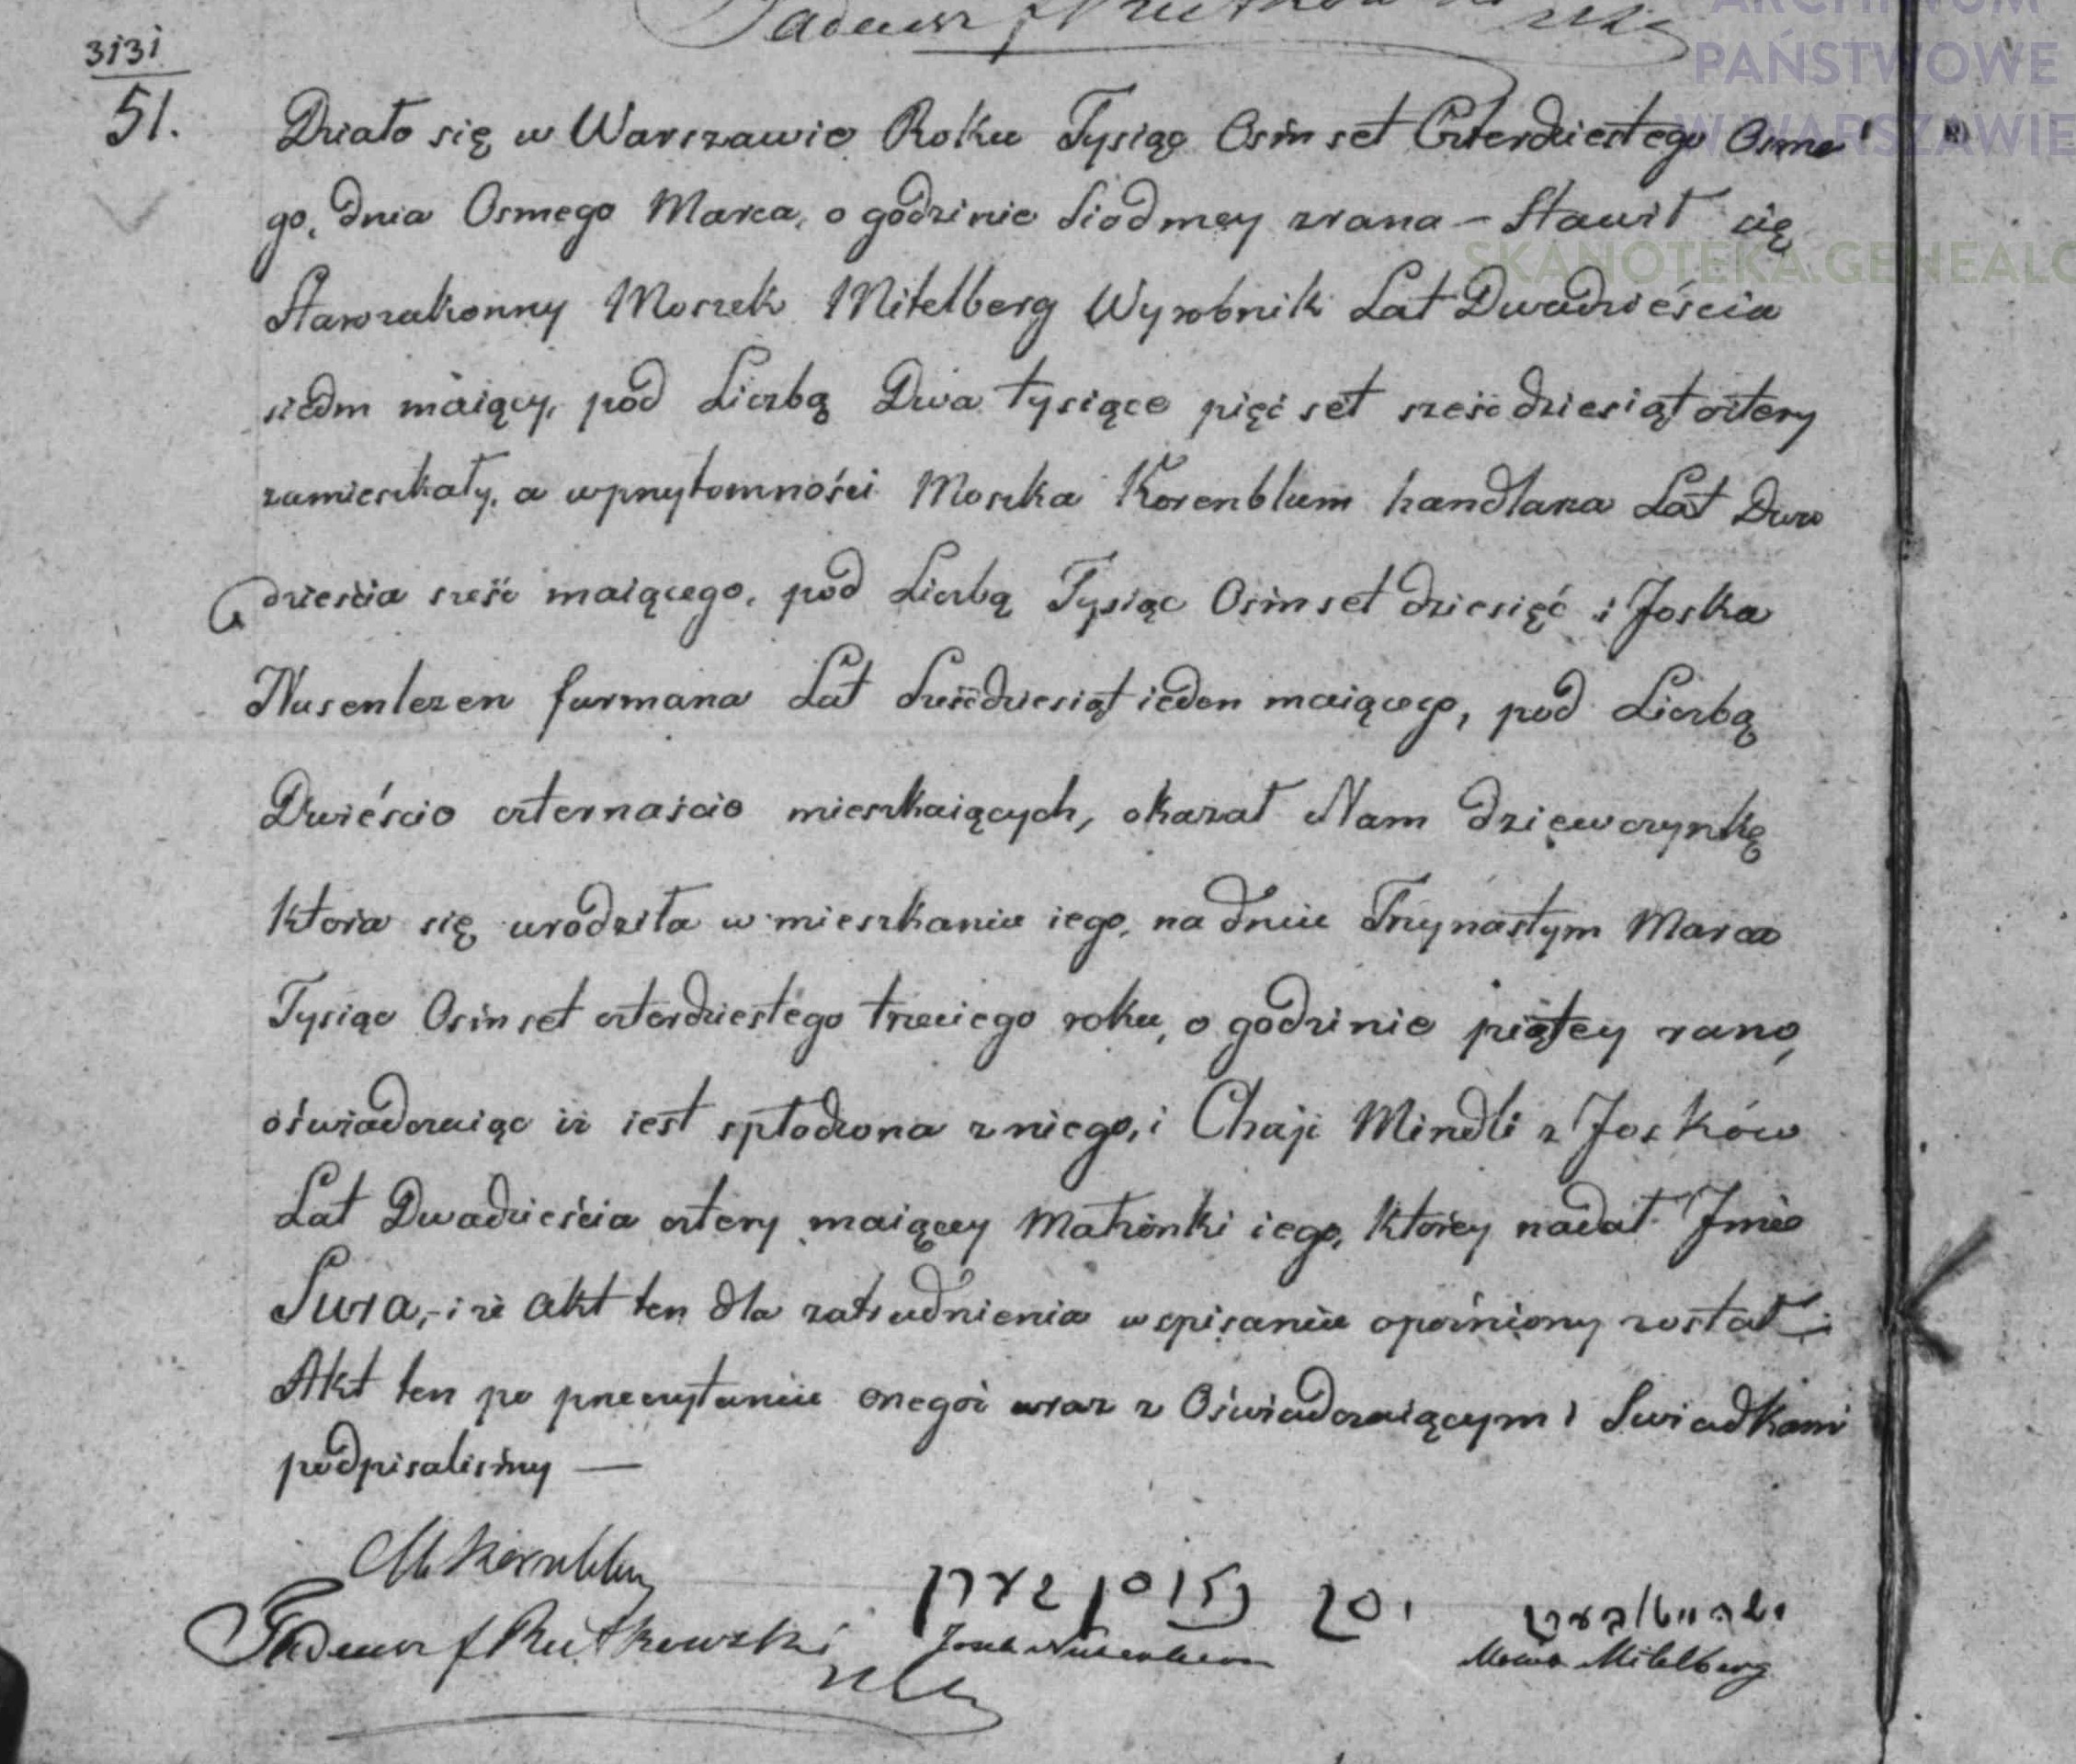 Tadeusz J Rutkowski
3131
51.
Działo się w Warszawie Roku Tysiąc Osmset Czterdziestego Osme
go, dnia Osmego Marca, o godzinie Siodmey zrana – Stawił się
Starozakonny Moszek Mitelberg Wyrobnik Lat Dwadzieścia
siedm maiący, pod Liczbą Dwa tysiące pięćset sześćdziesiąt cztery
zamieszkały, a wprzytomności Moszka Korenblum handlarza Lat Dwa
dzieścia sześć maiącego, pod Liczbą Tysiąc Osmset dziesięć i Joska
Nusenlezen furmana Lat Sześcdziesiąt ieden maiącego, pod Liczbą
Dwieście czternaście mieszkaiących, okazał Nam dziewczynkę
która się urodziła w mieszkaniu iego, na dniu Trzynastym Marca
Tysiąc Osmset czterdziestego trzeciego roku, o godzinie piątey rano,
oświadczaiąc iż iest spłodzona z niego, i Chaji Mindli z Josków
Lat Dwadzieścia cztery maiącey Małżonki iego, którey nadał Imie
Sura, – i że akt ten dla zatrudnienia w spisaniu opóźniony został –
Akt ten po przeczytaniu onegoż wraz z Oświadczaiącym i Swiadkami
podpisalismy —
Tadeusz J Rutkowski
Mitelberg
ARCHIWUM
PAŃSTWOWE
W WARSZAWIE
SKANOTEKA.GENEALO